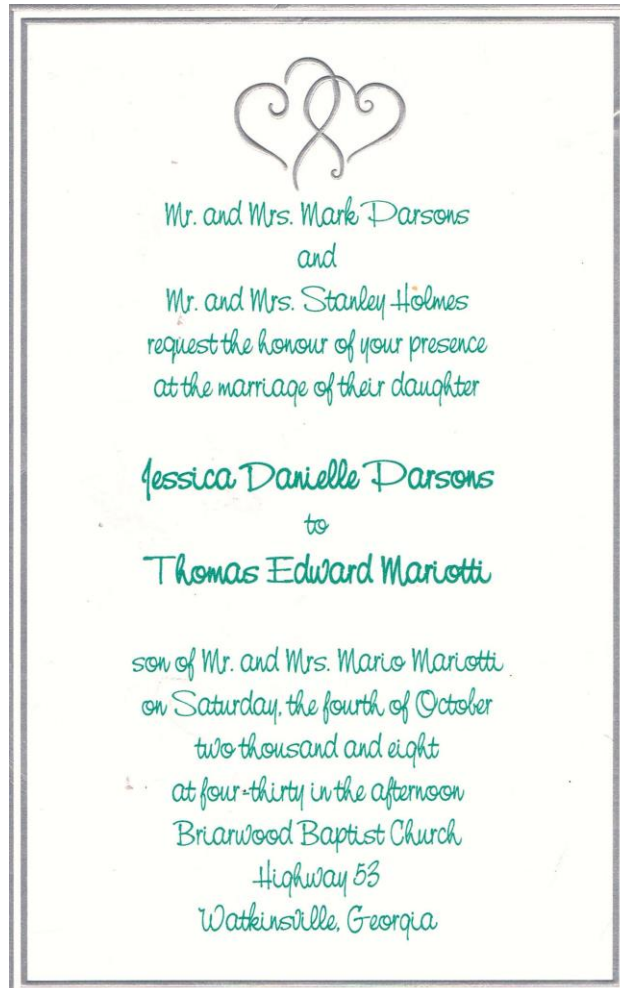 Mr. and Mrs. Mark Parsons
and
Mr. and Mrs. Stanley Holmes
request the honour of your presence
at the marriage of their daughter
Jessica Danielle Parsons
to
Thomas Edward Mariotti
son of Mr. and Mrs. Mario Mariotti
on Saturday, the fourth of October
two thousand and eight
at four-thirty in the afternoon
Briarwood Baptist Church
Highway 53
Watkinsville, Georgia